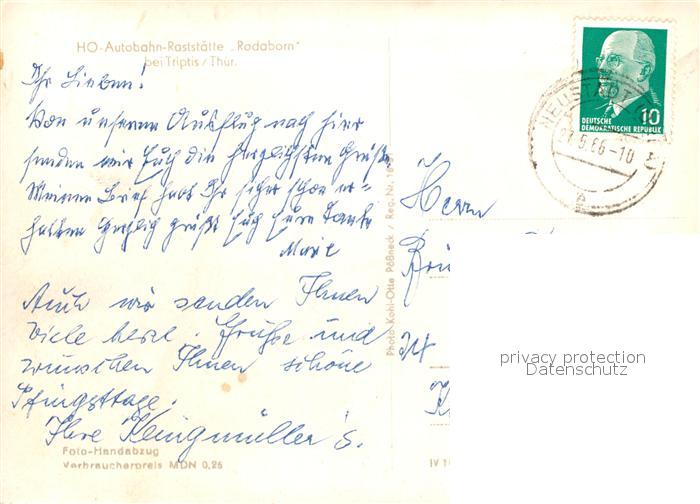 HO-Autobahn-Raststätte „Rodaborn"
bei Triptis / Thür.
Ihr Lieben!
Von unserem Ausflug nach hier
senden wir Euch die herzlichsten Grüße.
Meinen Brief habt Ihr sicher schon er-
halten herzlich grüßt Euch Eure Tante
Marie
Auch wir senden Ihnen
viele herzl. Grüße und
wünschen Ihnen schöne
Pfingsttage.
Ihre Klingmüller's.
Foto-Handabzug
Verbraucherpreis MDN 0,25
Photo-Kohl-Otto Pößneck / Reg.-Nr.
IV
DEUTSCHE
DEMOKRATISCHE REPUBLIK
10
NEUSTADT
27.5.66-10
Herrn
privacy protection
Datenschutz